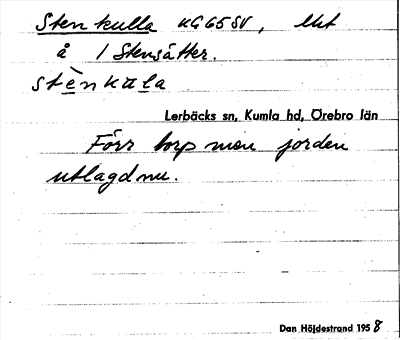 Stenkulla KG65SV, lht
å 1 Stensätter.
stènkula
Lerbäcks sn, Kumla hd, Örebro län
Förr torp men jorden
utlagd nu.
Dan Höjdestrand 1958